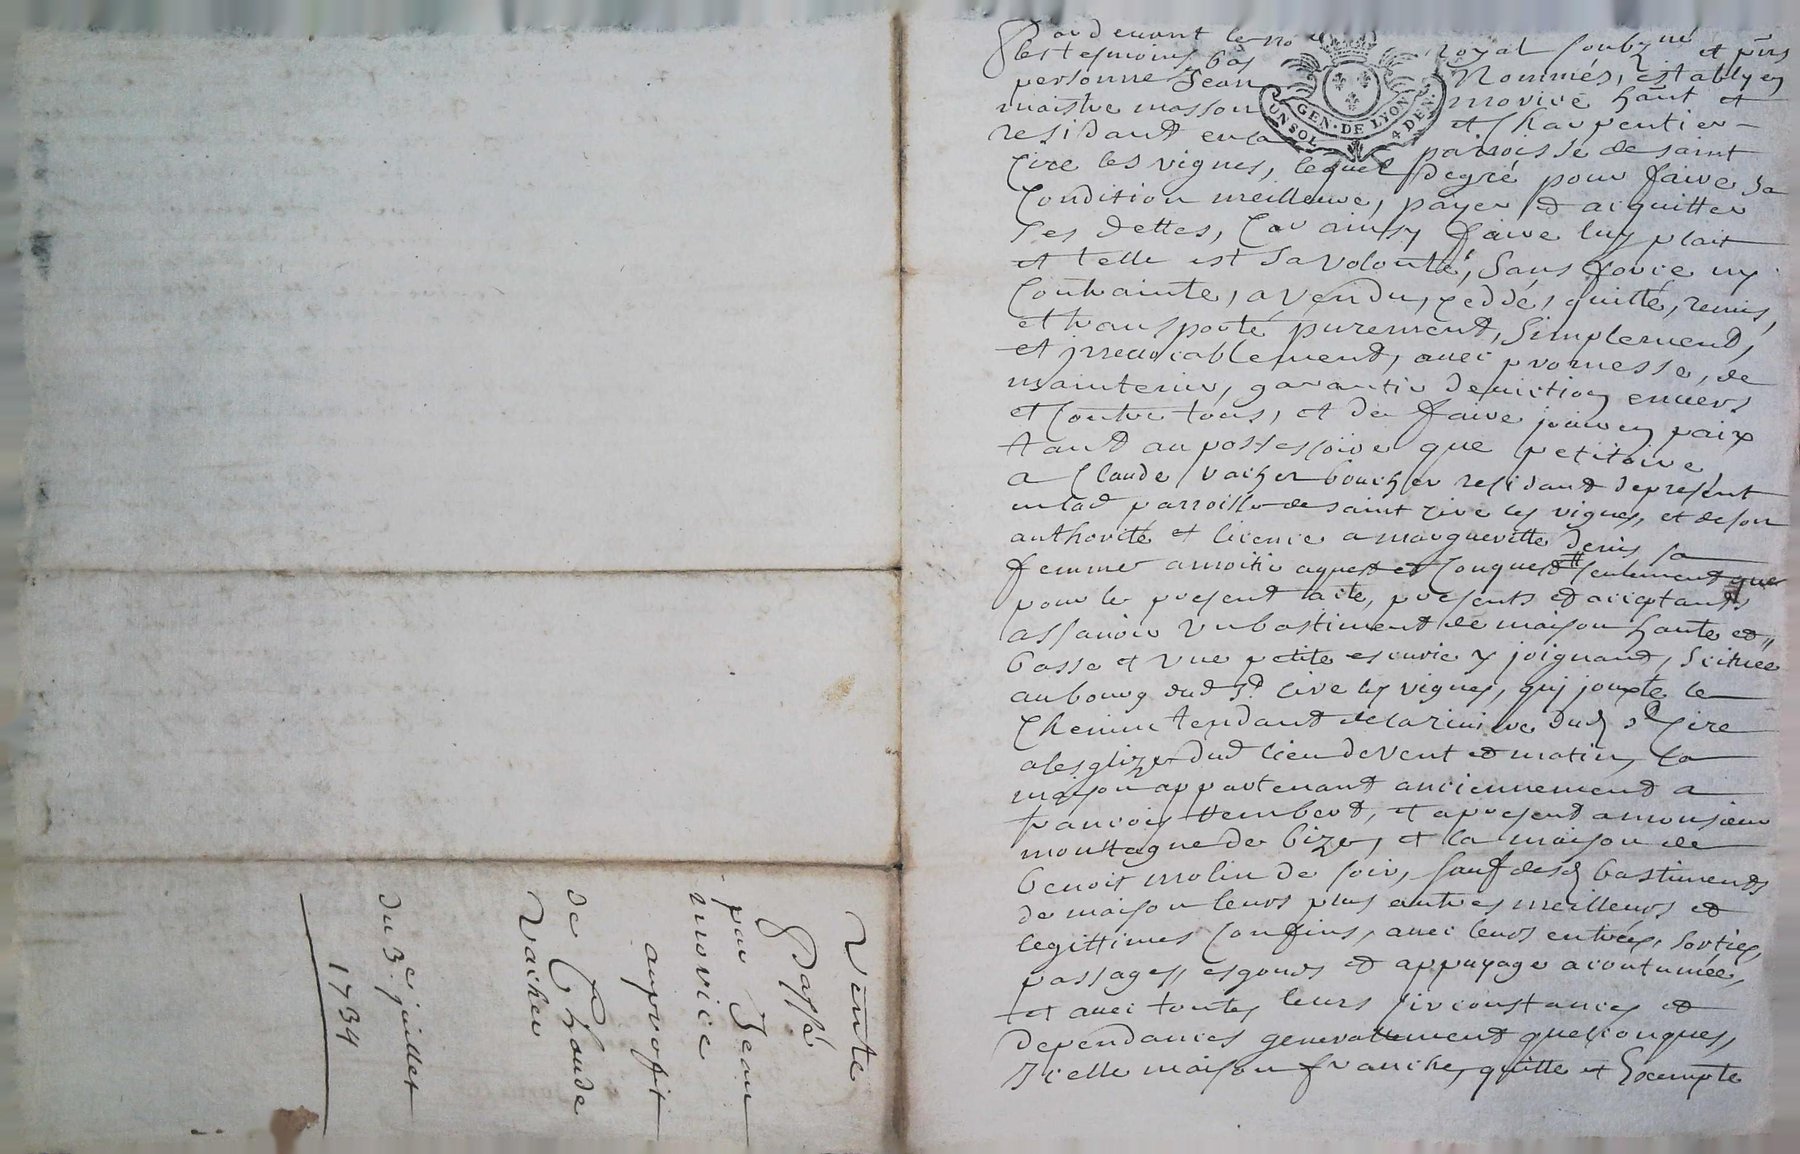 Vente
Passé
par Jean
morice
auprofit
de Claude
Vacher
du 3.e juillet
1734
Pardevant le no royal soubz.né et pñts
les tesmoins bas Nommés, estably en
personne Jean morice hañt et
maistre masson et Charpentier
residant en la parroisse de saint
Cire les vignes, lequel degré pour faire sa
Condition meilleure, payer et aiquitter
ses dettes, Car ainsy faire luy plait
et telle est sa volonté, sans force ny
Contrainte, a vendu, ceddé, quitté, remis,
et transporté purement, simplement,
et jrreuocablement, auec promesse, de
maintenir, garantir deuiction enuers
et Contre tous, et de faire jouir en paix
tant au possessoire que petitoire
a Claude Vacher boucher residant depresent
en lad parroisse de saint cire les vignes, et de son
authorité et licence a margueritte denis sa
femme a moitié aquest et Conquest seulement que
pour le present acte, presents et acceptants
assauoir Vn bastiment de maison haute et
basse et Vne petite escurie y joignant, scituée
au bourg dud St Cire les vignes, quj jouxte le
Chemin tendant de la riuiere dud St Cire
a lesglize dud lieu de Vent et matin, la
maison appartenant anciennement a
francois humbert, et apresent a monsieur
montagne de bize, et la maison de
benoit molin de soir, sauf desd bastiments
de maison leurs plus autres meilleurs et
legittimes Confins, auec leurs entrées, sorties,
passages, esgouts et appuyage acoutumée,
et auec toutes leurs Circonstances et
dependances generallement quelconques,
Icelle maison franche, quitte et Exempte
GEN · DE LYON
ON SOL 4 DEN.